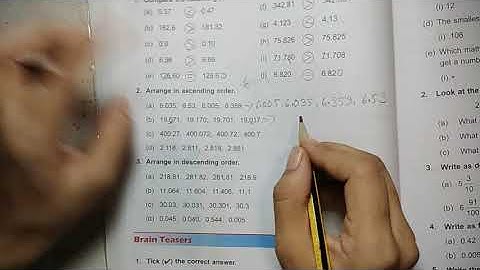 (a) 0.37 > 0.47
(b) 182.8 > 181.82
(c) 0.9 > 0.10
(e) 128.60 = 128.6
(f) 342.81
(g) 4.123 > 4.13
(h) 75.826 > 75.825
(i) 71.706 > 71.708
(j) 6.820 = 6.820
2. Arrange in ascending order.
(a) 6.035, 6.53, 6.005, 6.359 → 6.005, 6.035, 6.359, 6.53
(b) 19.071, 19.170, 19.701, 19.017
(c) 400.27, 400.072, 402.72, 400.7
(d) 2.118, 2.811, 2.818, 2.881
3. Arrange in descending order.
(a) 218.81, 281.82, 281.81, 218.5
(b) 11.064, 11.604, 11.406, 11.1
(c) 30.03, 30.031, 30.301, 30.3
(d) 0.045, 0.040, 0.544, 0.005
Brain Teasers
1. Tick (✓) the correct answer.
(i) 12
(d) The smalles
(i) 108
(e) Which mat
get a numb
2. Look at the
(a) What
(b) What
(c) What
3. Write as d
(a) 5 3/10
(b) 6 91/100
4. Write as f
(a) 0.42
(a) 0.005
5. Write the